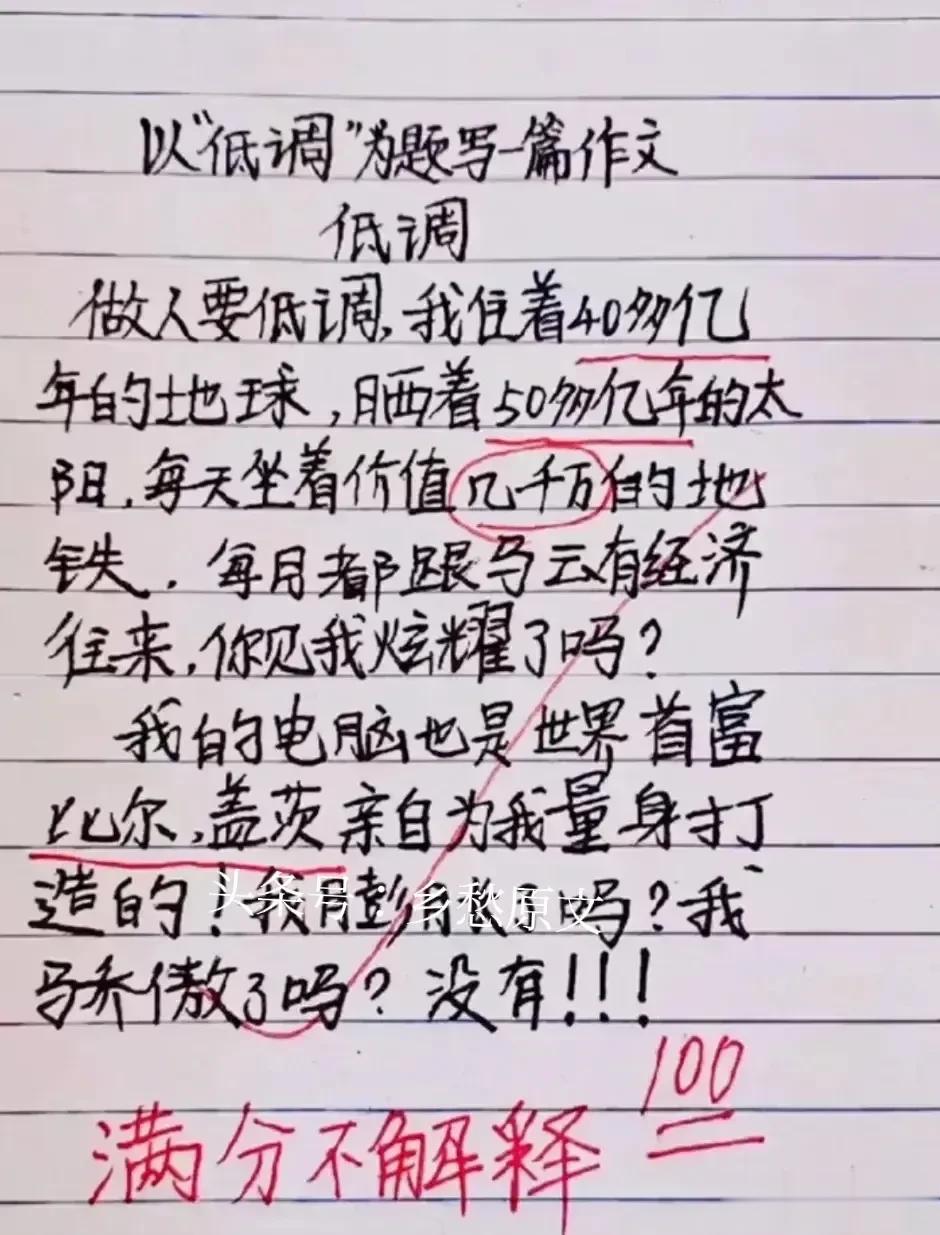 以"低调"为题写一篇作文
低调
做人要低调,我住着40多亿
年的地球,晒着50多亿年的太
阳,每天坐着价值几千万的地
铁.每月都跟马云有经济
往来,你见我炫耀了吗?
我的电脑也是世界首富
比尔.盖茨亲自为我量身打
造的!我膨胀了吗?我
头条号:乡愁原文
骄傲了吗?没有!!!
100
满分不解释